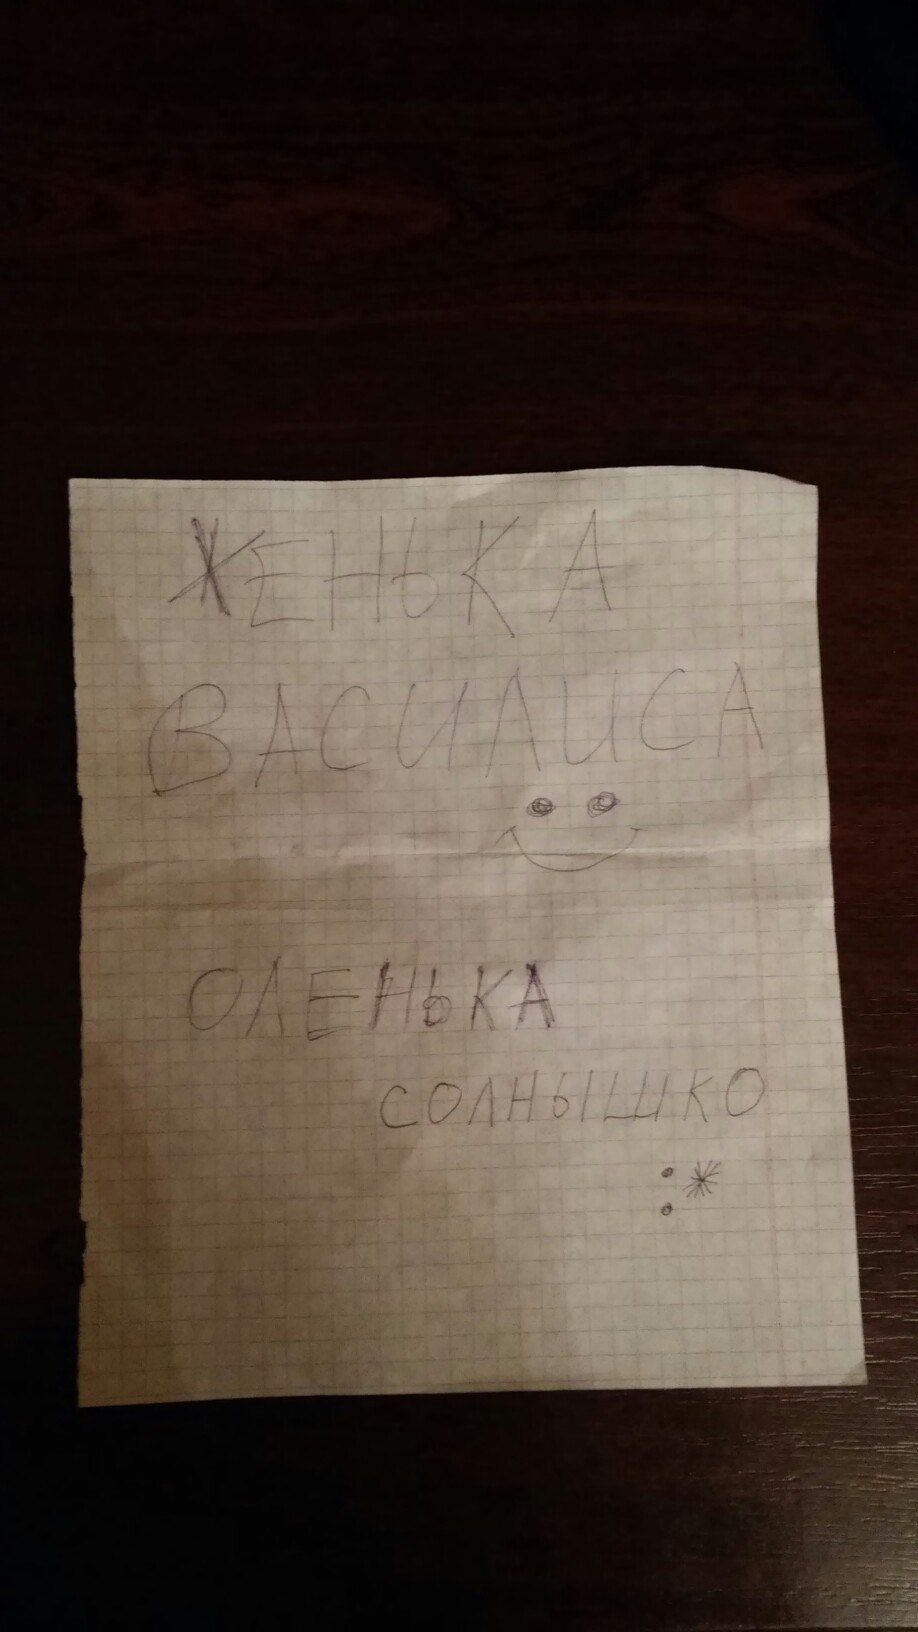 ЖЕНЬКА
ВАСИЛИСА
ОЛЕНЬКА
СОЛНЫШКО
:*